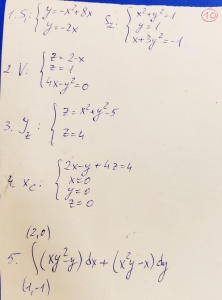 1. S₁: { y = -x² + 8x
y = -2x
S₂: { x² + y² = 1
y = 1
x + 3y² = -1
10
2 V: { z = 2 - x
z = 1
4x - y² = 0
3. y_z: { z = x² + y² - 5
z = 4
4. x_c: { 2x - y + 4z = 4
x = 0
y = 0
z = 0
(2,0)
5. ∫ (xy² - y) dx + (x²y - x) dy
(1,-1)